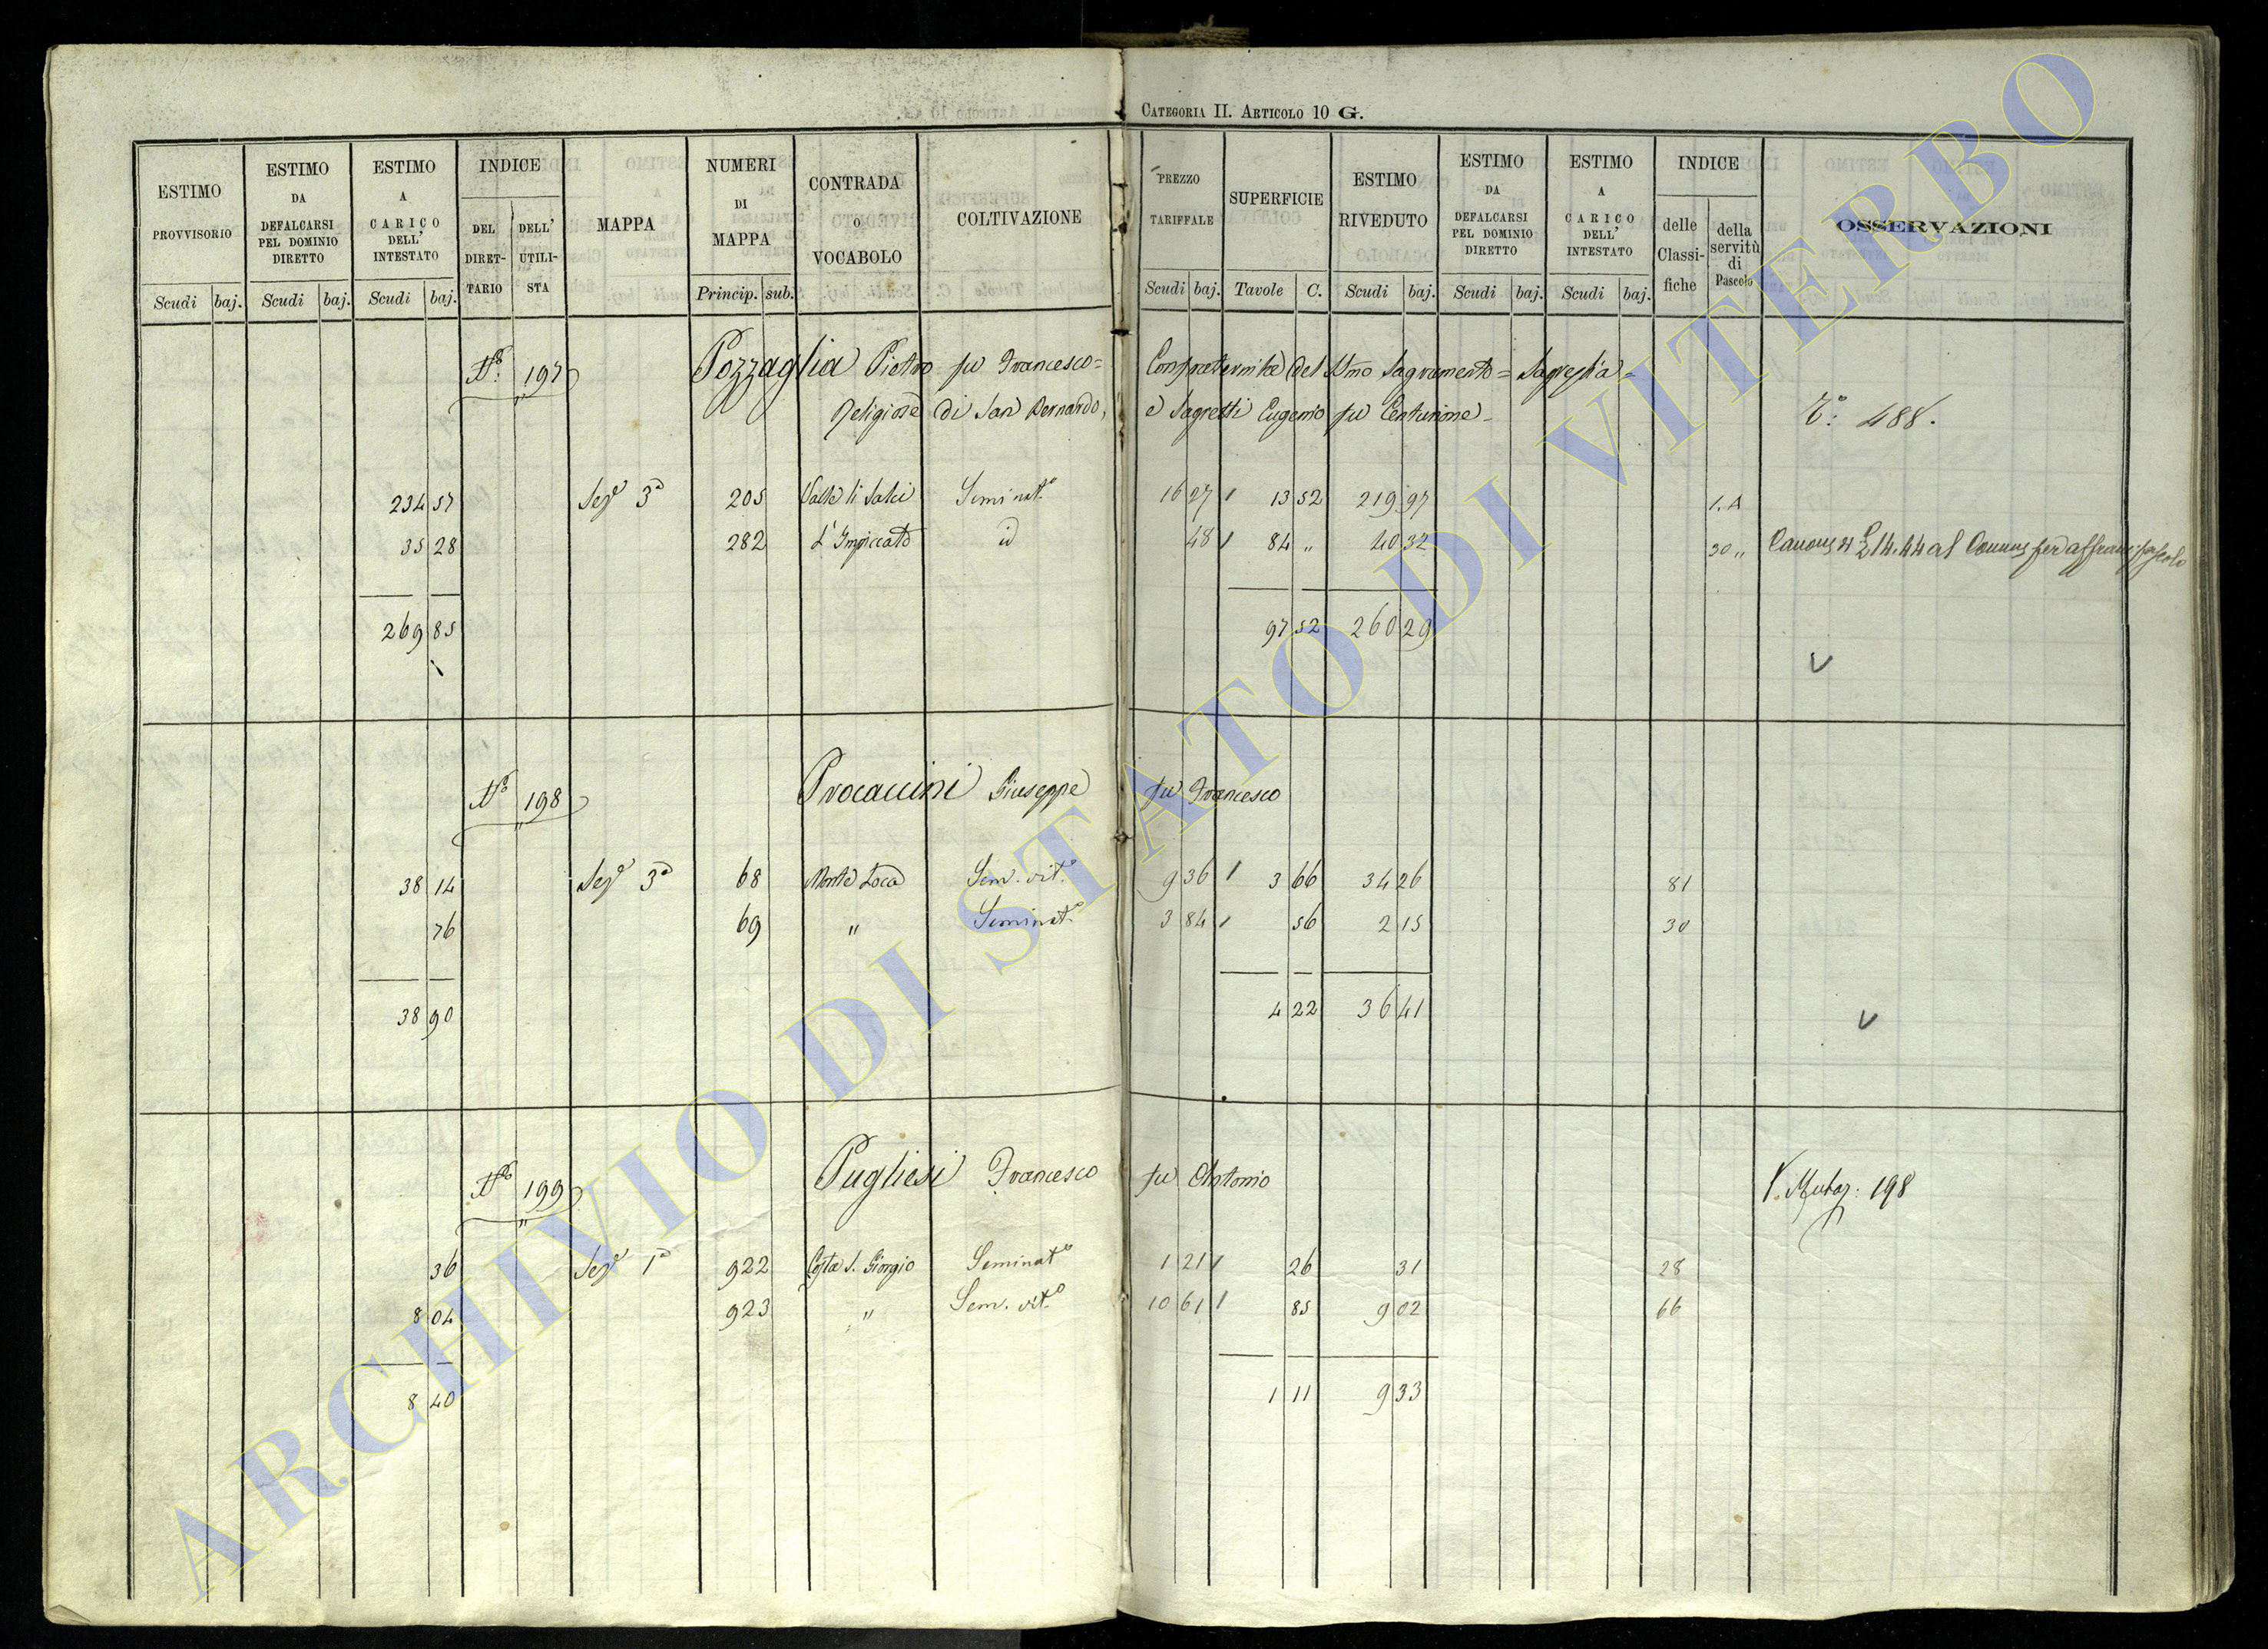 CATEGORIA II. ARTICOLO 10 G.
ESTIMO PROVVISORIO Scudi baj.
ESTIMO DA DEFALCARSI PEL DOMINIO DIRETTO Scudi baj.
ESTIMO A CARICO DELL' INTESTATO Scudi baj.
INDICE DEL DIRETTARIO DELL' UTILISTA
MAPPA
NUMERI DI MAPPA Princip. sub.
CONTRADA O VOCABOLO
COLTIVAZIONE
PREZZO TARIFFALE Scudi baj.
SUPERFICIE Tavole C.
ESTIMO RIVEDUTO Scudi baj.
ESTIMO DA DEFALCARSI PEL DOMINIO DIRETTO Scudi baj.
ESTIMO A CARICO DELL' INTESTATO Scudi baj.
INDICE delle Classifiche della servitù di Pascolo
OSSERVAZIONI
N.º 197 Pozzaglia Pietro fu Francesco = Confraternita del SSmo Sagramento = Sagrestia =
Religiose di San Bernardo, e Sagretti Eugenio fu Centurione - 488.
234 57 Sez.e 3a 205 Valle li Salci Seminat.o 16 27 13 52 219 97 1. A
35 28 282 L'Impiccato id 48 84 " 40 32 30 "
269 85 97 52 260 29
V
Nº 198 Procaccini Giuseppe fu Francesco
38 14 Sez.e 3a 68 Monte Loca Sem. vit.o 9 36 3 66 34 26 81
76 69 " Seminat.o 3 84 56 2 15 30
38 90 4 22 36 41
V
Nº 199 Pugliesi Francesco fu Antonio V. Mutaz: 198
36 Sez.e 1a 922 Costa S. Giorgio Seminat.o 1 21 26 31 28
8 04 923 " Sem. vit.o 10 61 85 9 02 66
8 40 1 11 9 33
ARCHIVIO DI STATO DI VITERBO